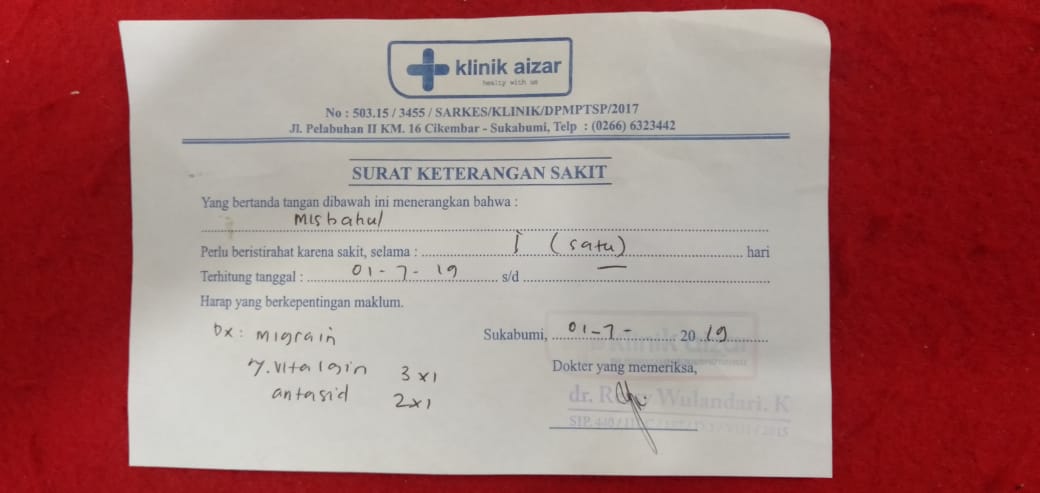 klinik aizar
healty with us
No : 503.15 / 3455 / SARKES/KLINIK/DPMPTSP/2017
Jl. Pelabuhan II KM. 16 Cikembar - Sukabumi, Telp : (0266) 6323442
SURAT KETERANGAN SAKIT
Yang bertanda tangan dibawah ini menerangkan bahwa :
Misbahul
Perlu beristirahat karena sakit, selama : 1 (satu) hari
Terhitung tanggal : 01-7-19 s/d —
Harap yang berkepentingan maklum.
Dx : Migrain
Vitalgin 3x1
antasid 2x1
Sukabumi, 01-7- 20 19
klinik aizar
Dokter yang memeriksa,
dr. Wulandari. K
SIP.